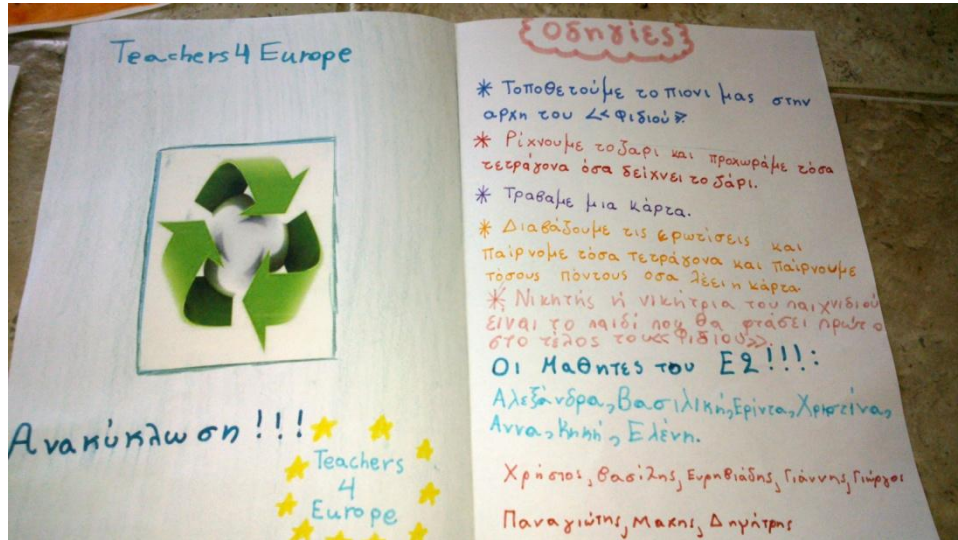 Teachers 4 Europe
Ανακύκλωση!!!
Teachers
4
Europe
Οδηγίες
* Τοποθετούμε το πιονι μας στην
αρχη του << Φιδιού >>.
* Ρίχνουμε το ζαρι και προχωράμε τόσα
τετράγονα όσα δείχνει το ζάρι.
* Τραβαμε μια κάρτα.
* Διαβάζουμε τις ερωτίσεις και
παίρνομε τόσα τετράγονα και παίρνουμε
τόσους πόντους οσα λέει η κάρτα.
* Νικητής ή νικήτρια του παιχνιδιού
είναι το παιδί που θα φτάσει πρώτο
στο τέλος του << Φιδιού >>.
Οι Μαθητες του Ε2!!!:
Αλεξάνδρα, Βασιλική, Ερίντα, Χριστίνα,
Αννα, Κική, Ελένη.
Χρήστος, Βασίλης, Ευρηβιάδης, Γιάννης, Γιώργος
Παναγιώτης, Μακης, Δημήτρης